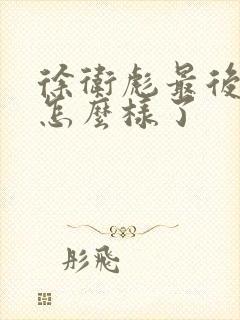 徐衛彪最後
怎麼樣了
彤飛